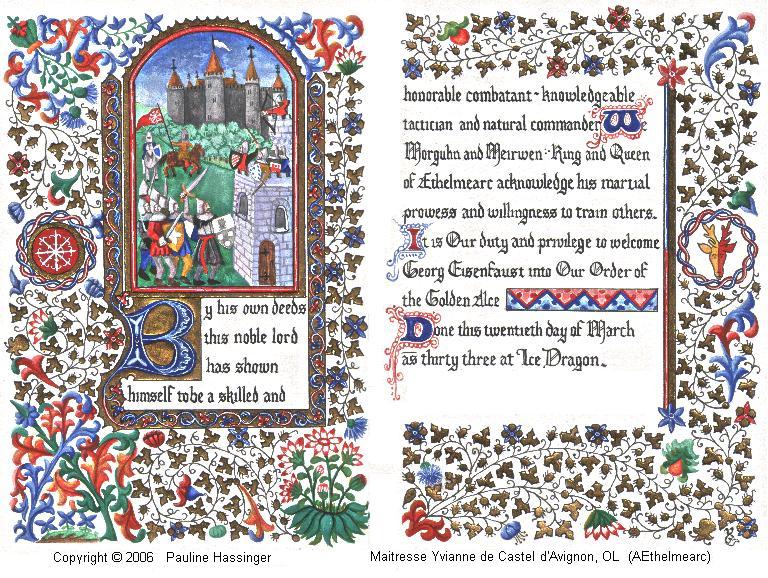 By his own deeds
this noble lord
has shown
himself to be a skilled and
honorable combatant - knowledgeable
tactician and natural commander We
Morguhn and Meirwen - King and Queen
of Æthelmearc acknowledge his martial
prowess and willingness to train others.
It is Our duty and privilege to welcome
Georg Eisenfaust into Our Order of
the Golden Alce
Done this twentieth day of March
as thirty three at Ice Dragon.
Copyright © 2006 Pauline Hassinger
Maitresse Yvianne de Castel d'Avignon, OL (AEthelmearc)